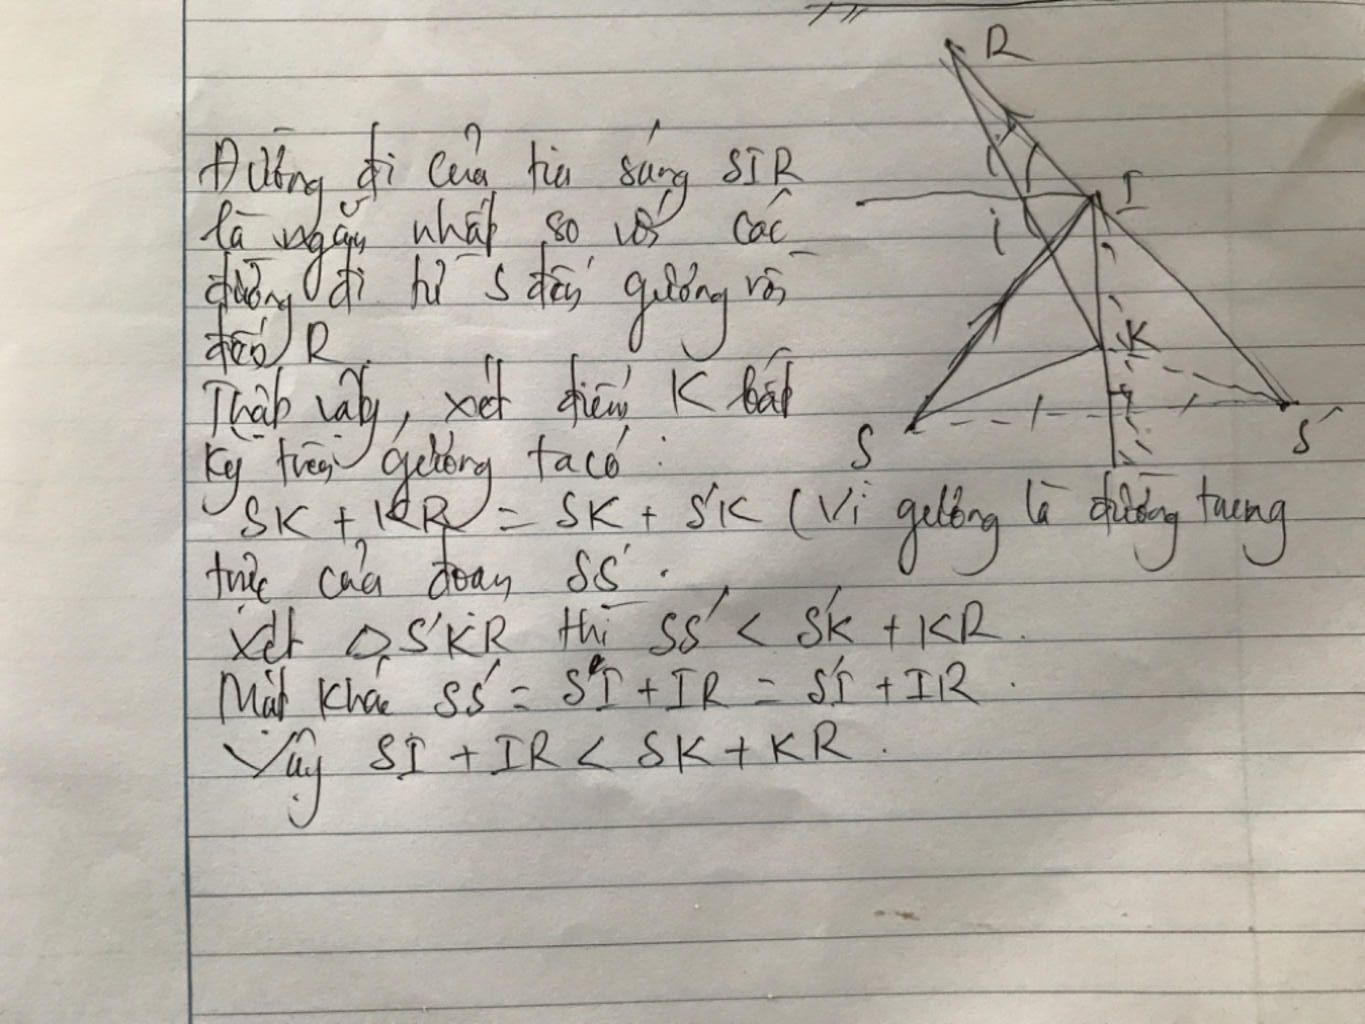 R
I
i
i
K
S
S'
Đường đi của tia sáng SIR
là ngắn nhất so với các
đường đi từ S đến gương rồi
đến R.
Thật vậy, xét điểm K bất
kỳ trên gương ta có :
SK + KR = SK + S'K (Vì gương là đường trung
trực của đoạn SS'.
Xét △S'KR thì SS' < S'K + KR.
Mặt khác SS' = S'I + IR = S'I + IR.
Vậy SI + IR < SK + KR.